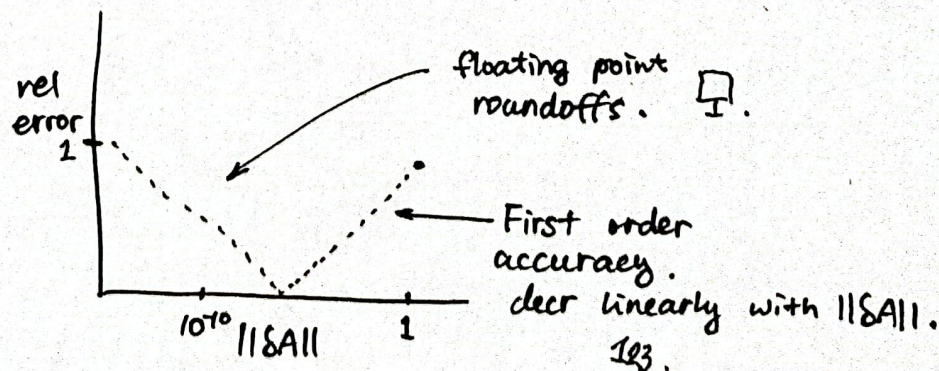 rel
error
1
floating point
roundoffs.
I.
First order
accuracy.
decr linearly with ||δA||.
10⁻¹⁰
||δA||
1